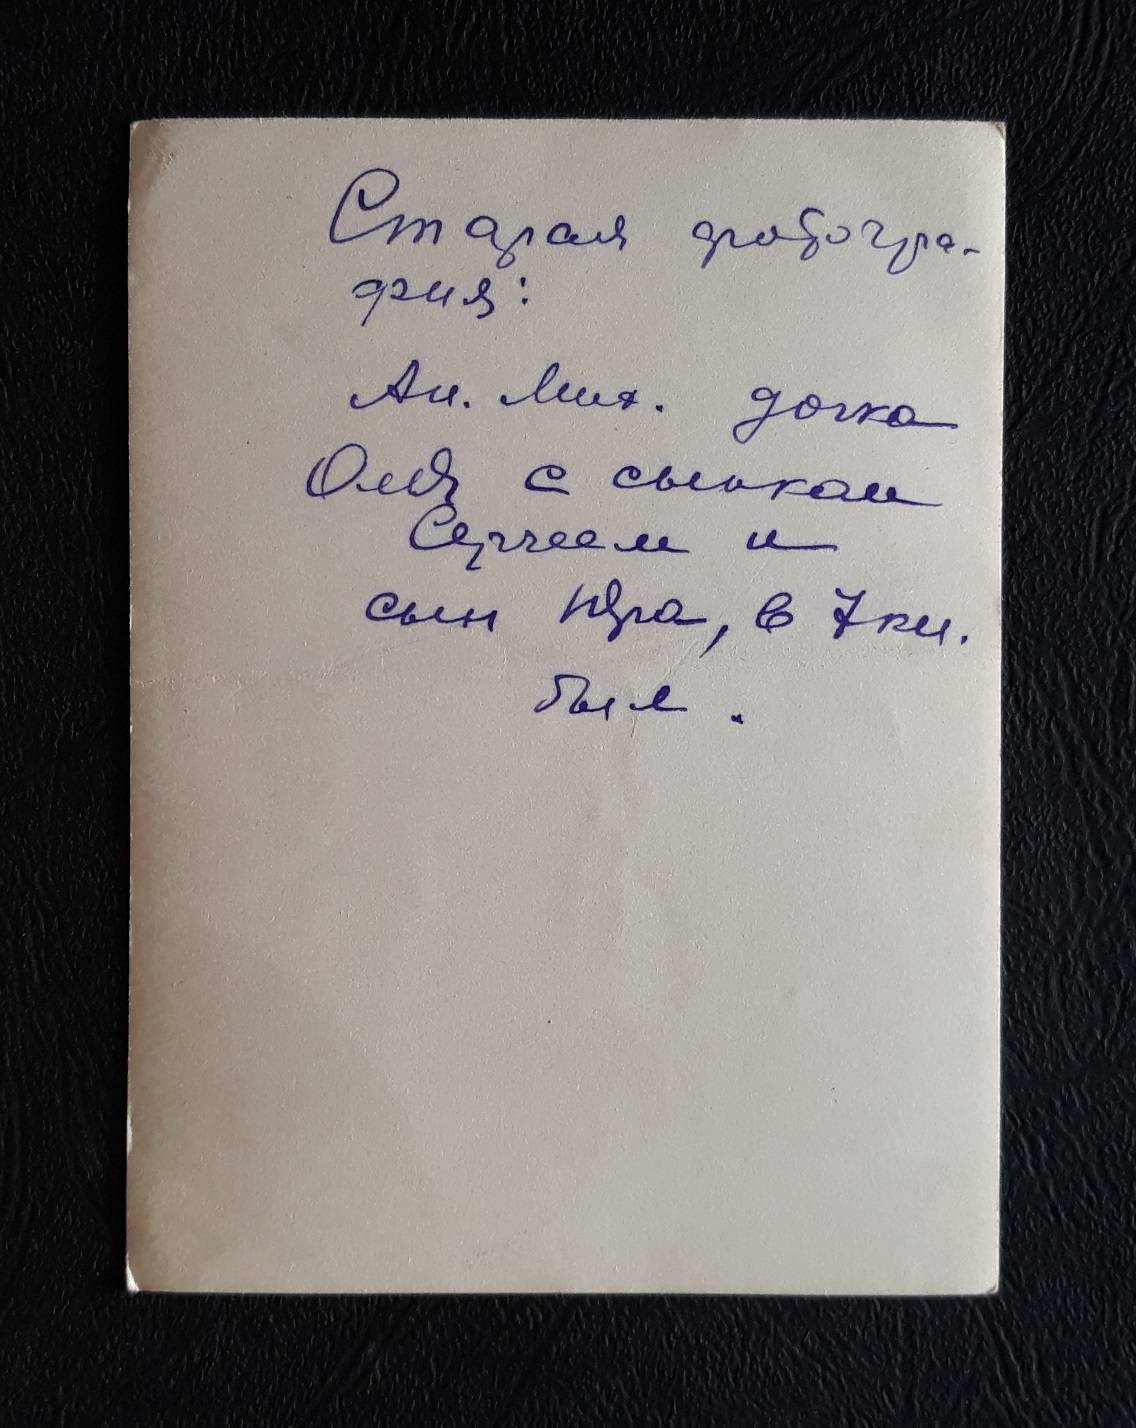 Старая фотогра-
фия:
Ан. Мих. дочка
Оля с сынком
Сергеем и
сын Юра, в 7 кл.
был.